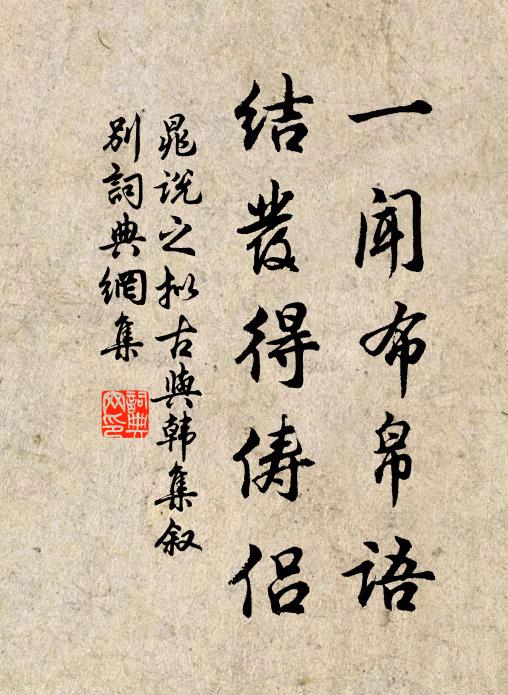 一闻布帛语
结發得俦侣
晁说之拟古与韩集叙
别词典網集
詞典网印